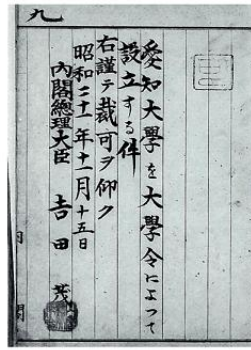 九
愛知大學を大學令によつて
設立する件
右謹テ裁可ヲ仰ク
昭和二十一年十一月十五日
內閣總理大臣 吉田 茂
內閣